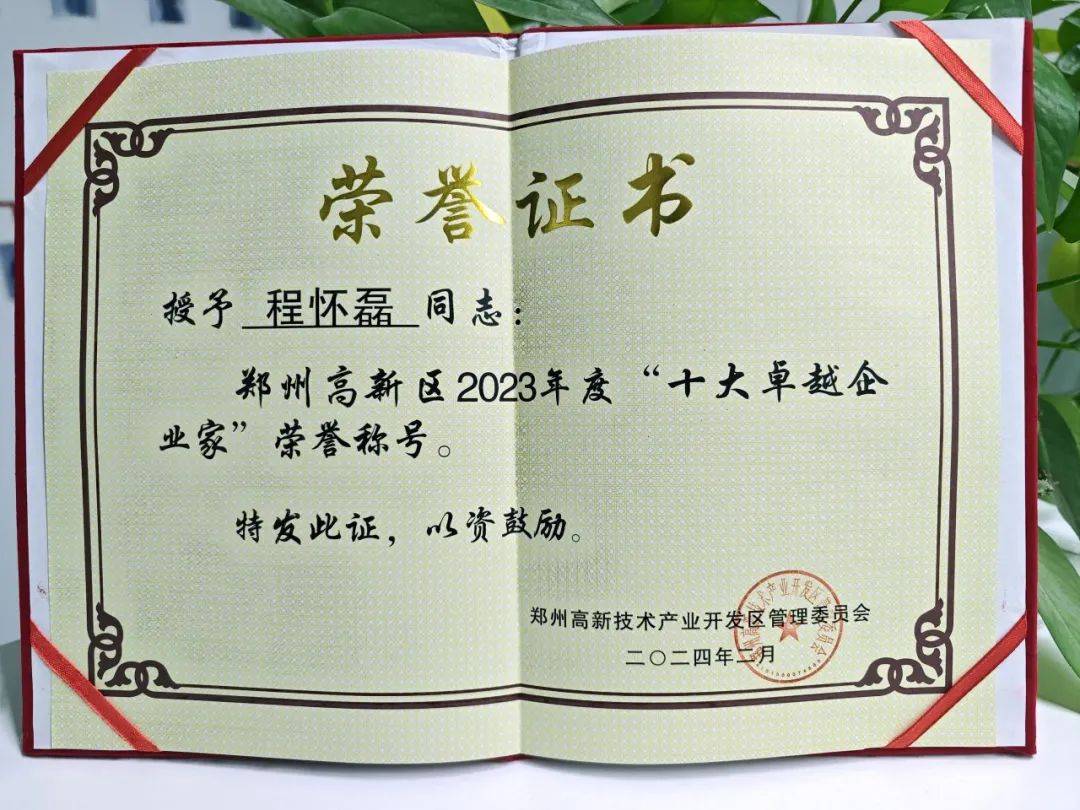 荣誉证书
授予 程怀磊 同志：
郑州高新区2023年度“十大卓越企
业家”荣誉称号。
特发此证，以资鼓励。
郑州高新技术产业开发区管理委员会
二〇二四年二月